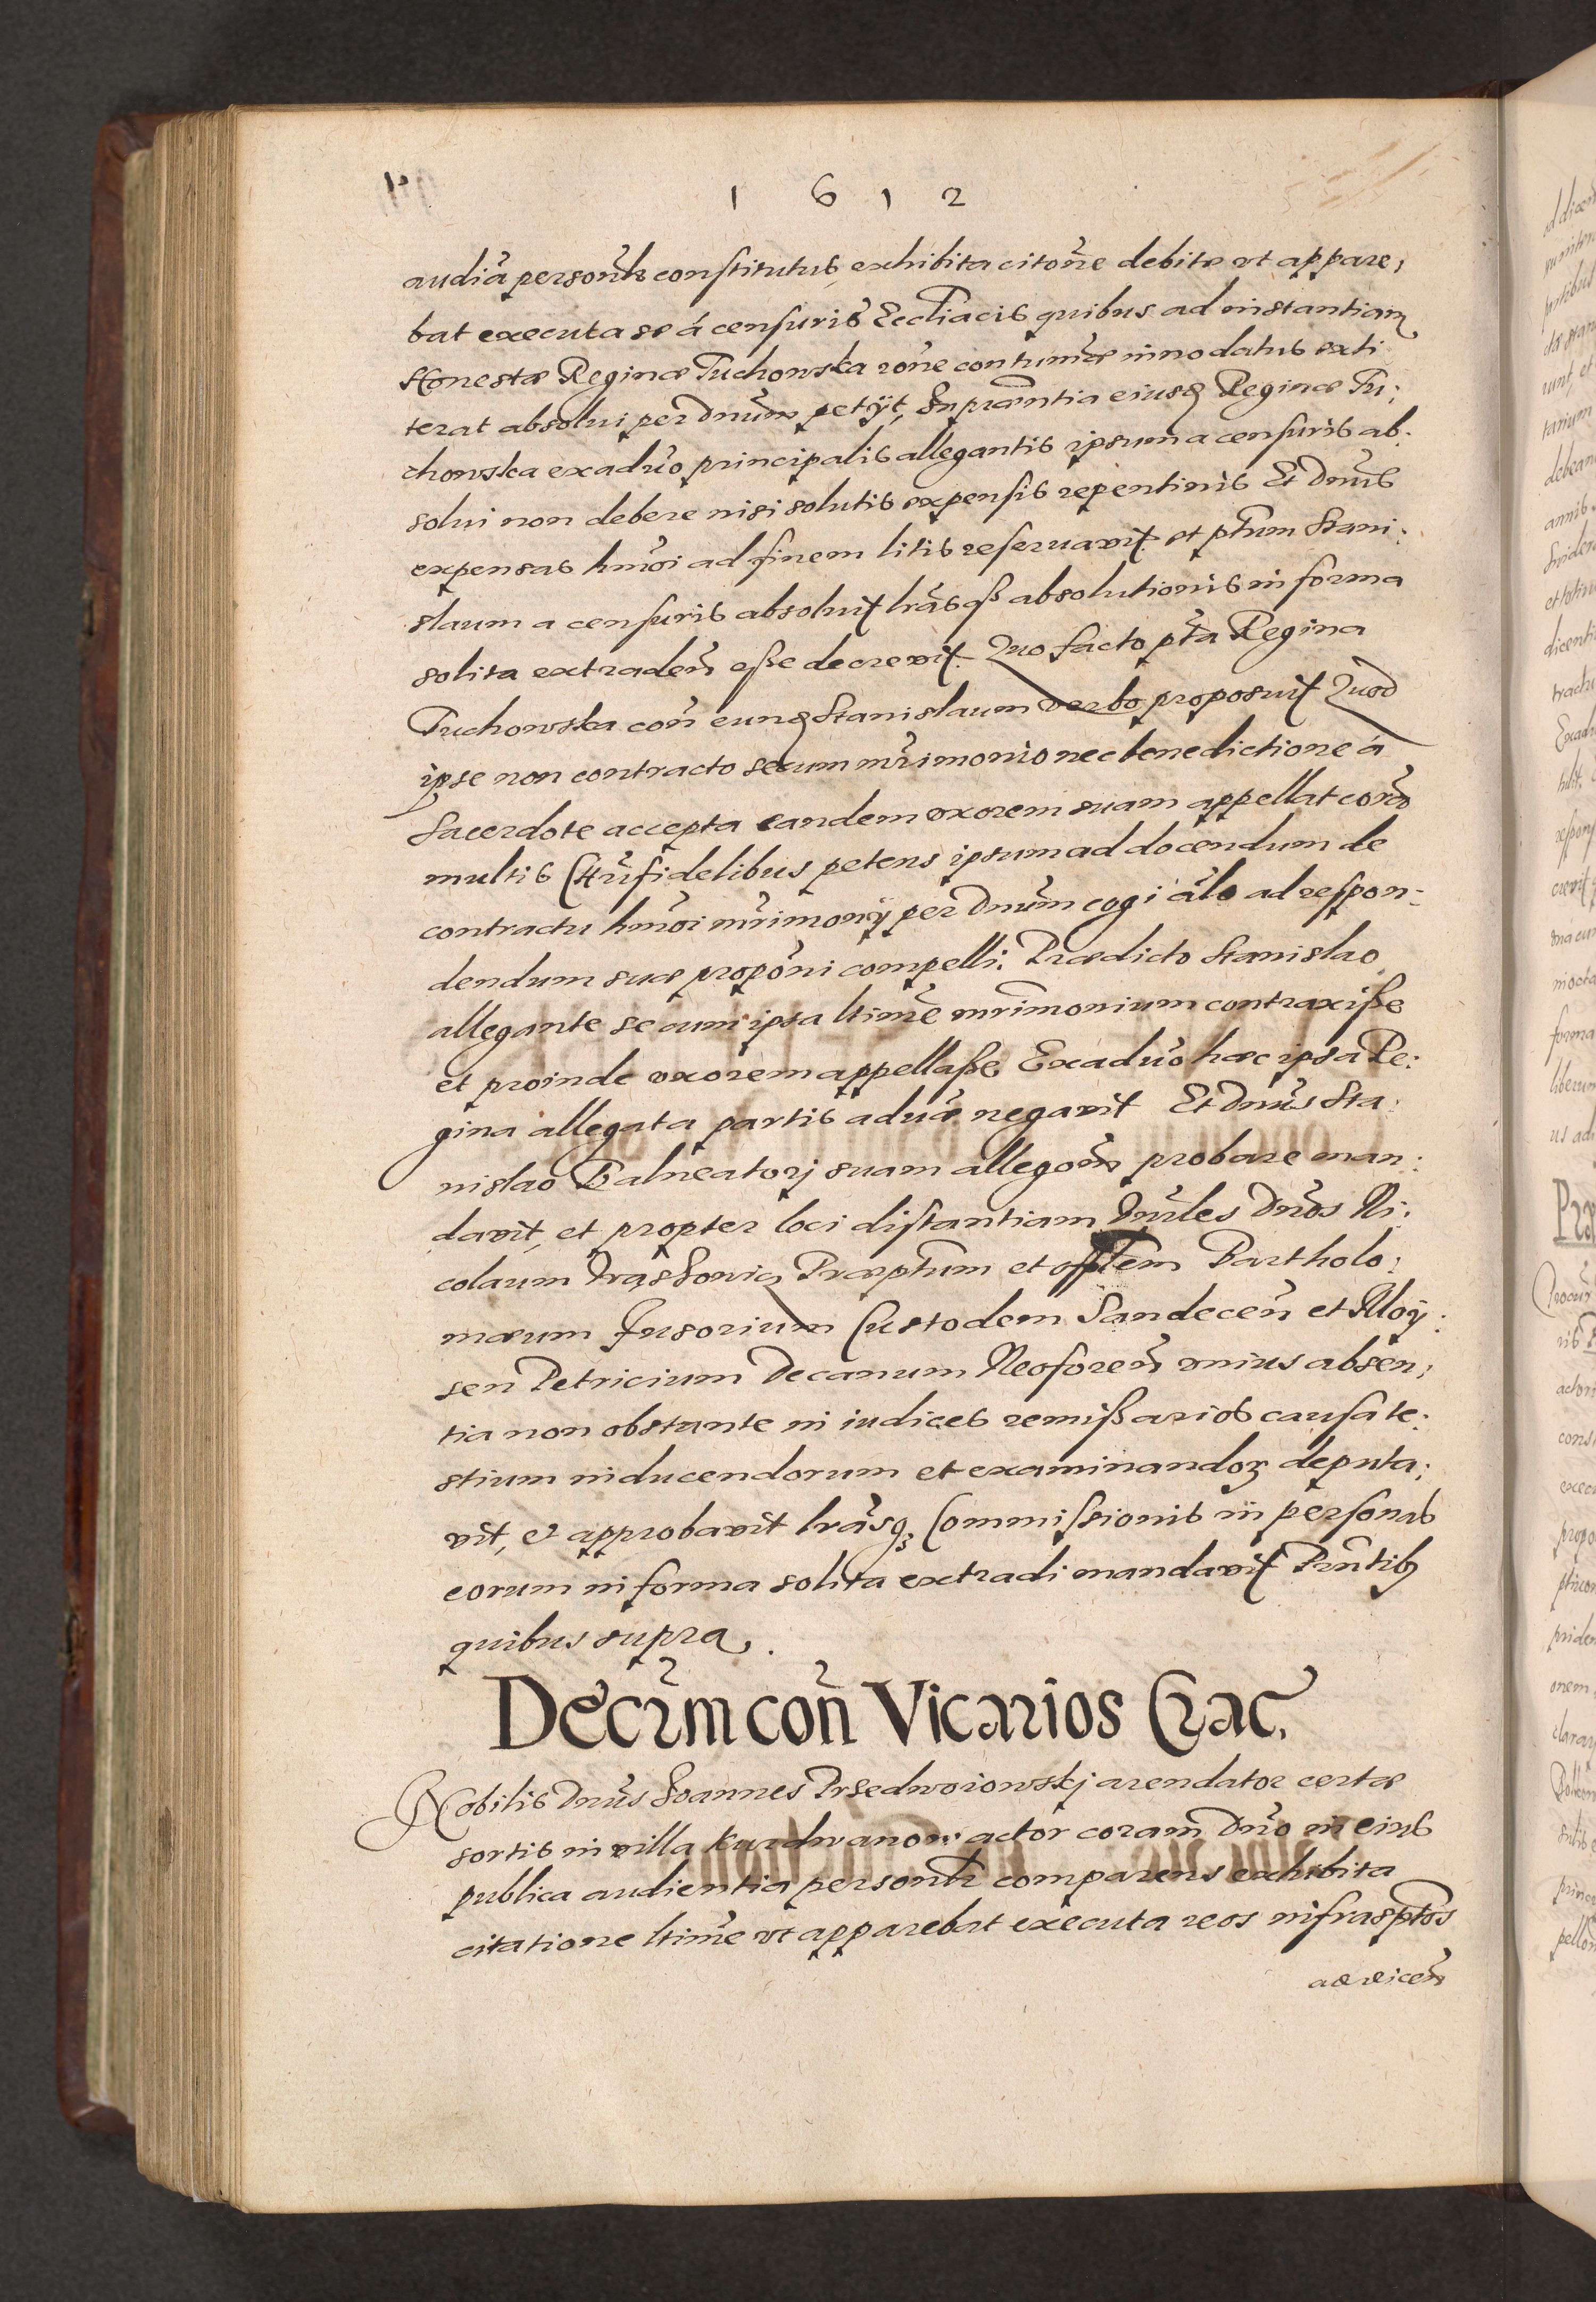 1 6 1 2
audiã personlr constitutus, exhibita citone debite vt appare,
bat executa se á censuris Eccliacis quibus ad instantiam
Honestæ Reginæ Tuchowska rone contumæ innodatus exti
terat absolui per Dnum petijt, In præntia eiusd Reginæ Tu:
chowska ex aduo principalis allegantis ipsum a censuris ab:
solui non debere nisi solutis expensis repentinis Et Dnus
expensas hmoi ad finem litis reseruavit et ptum Stani:
slaum a censuris absoluit lras q3 absolutionis in forma
solita extraden eße decrevit. Quo facto pta Regina
Tuchowska con eund Stanislaum verbo proposuit Quod
ipse non contracto secum mrimonio nec benedictione á
Sacerdote accepta eandem vxorem suam appellat coram
multis Chrifidelibus petens ipsum ad docendum de
contractu hmoi mrimonij per Dnum cogi alo ad respon-
dendum suæ proponi compelli. Prædicto Stanislao
allegante se cum ipsa ltime mrimonium contraxiße
et proinde vxorem appellaße Ex aduo hæc ipsa Re:
gina allegata partis aduæ negavit Et Dnus Sta:
nislao Balneatorj suam allegonem probare man:
davit, et propter loci distantiam Dnrles Dnos Ni:
colaum Præptum et offlem Bartholo:
mæum Fusorium Custodem Sandecen et Moy:
sen Petricium Decanum Neoforen vnius absen,
tia non obstante in iudices remißarios causa te:
stium inducendorum et examinandor deputa:
vit, et approbavit lrasq3 Commissionis in personas
eorum in forma solita extradi mandavit Pntib9
quibus supra.
Decrm con Vicarios Crac.
Nobilis Dnus Ioannes Przedwoiowskj arendator certæ
sortis in villa Kurdwanow actor coram Dno in eius
publica audientia personlr comparens exhibita
citatione ltime vt apparebat executa reos infrasptos
ad dicen